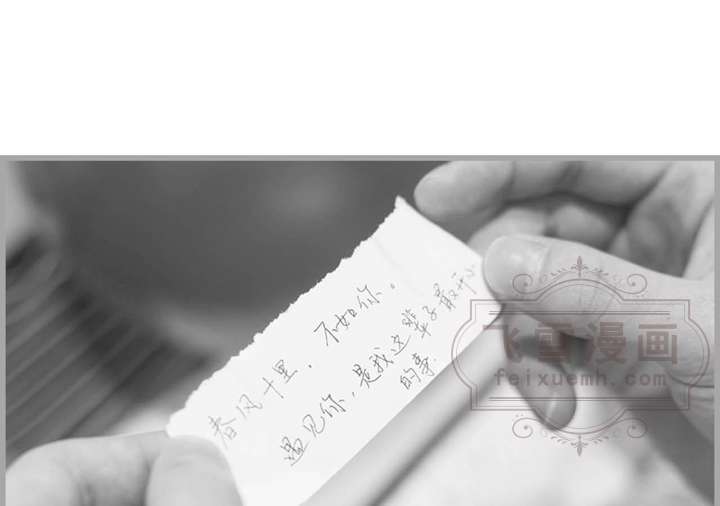 春风十里，不如你。
遇见你，是我这辈子最开心
的事.
飞雪漫画
feixuemh.com